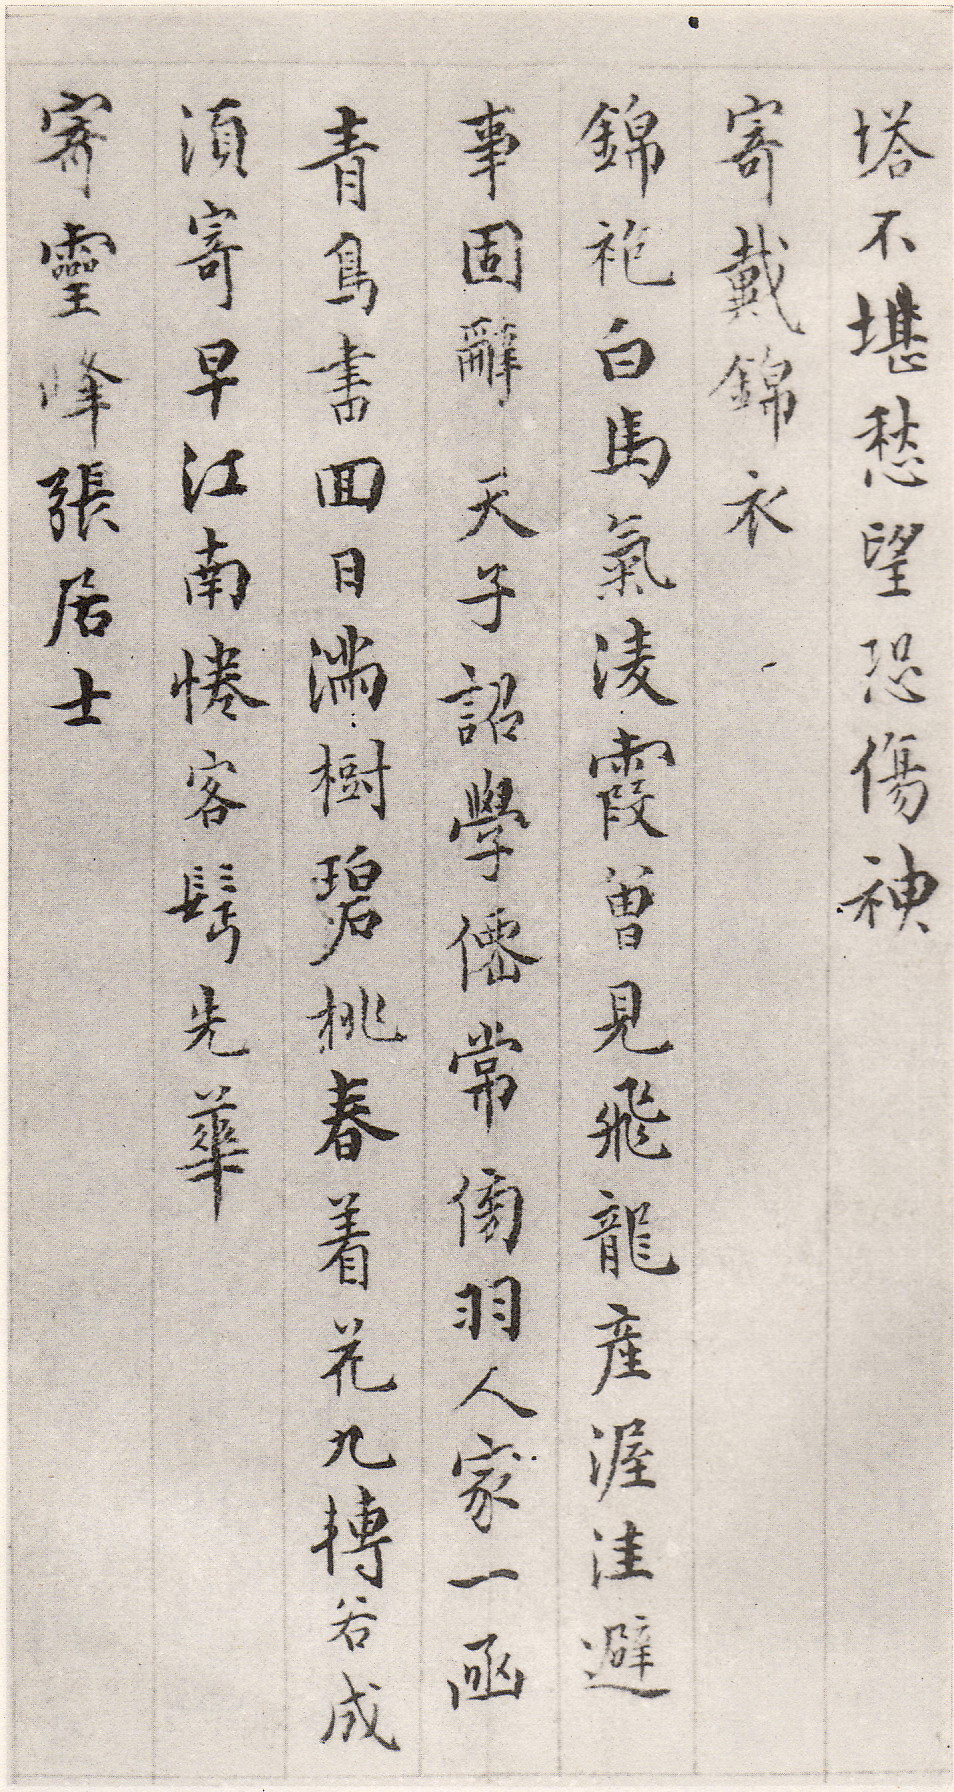 塔不堪愁望恐傷神
寄戴錦衣
錦袍白馬氣凌霞曾見飛龍產渥洼避
事固辭天子詔學僊常傍羽人家一函
青鳥書回日滿樹碧桃春着花九轉若成
須寄早江南倦客鬢先華
寄靈峰張居士